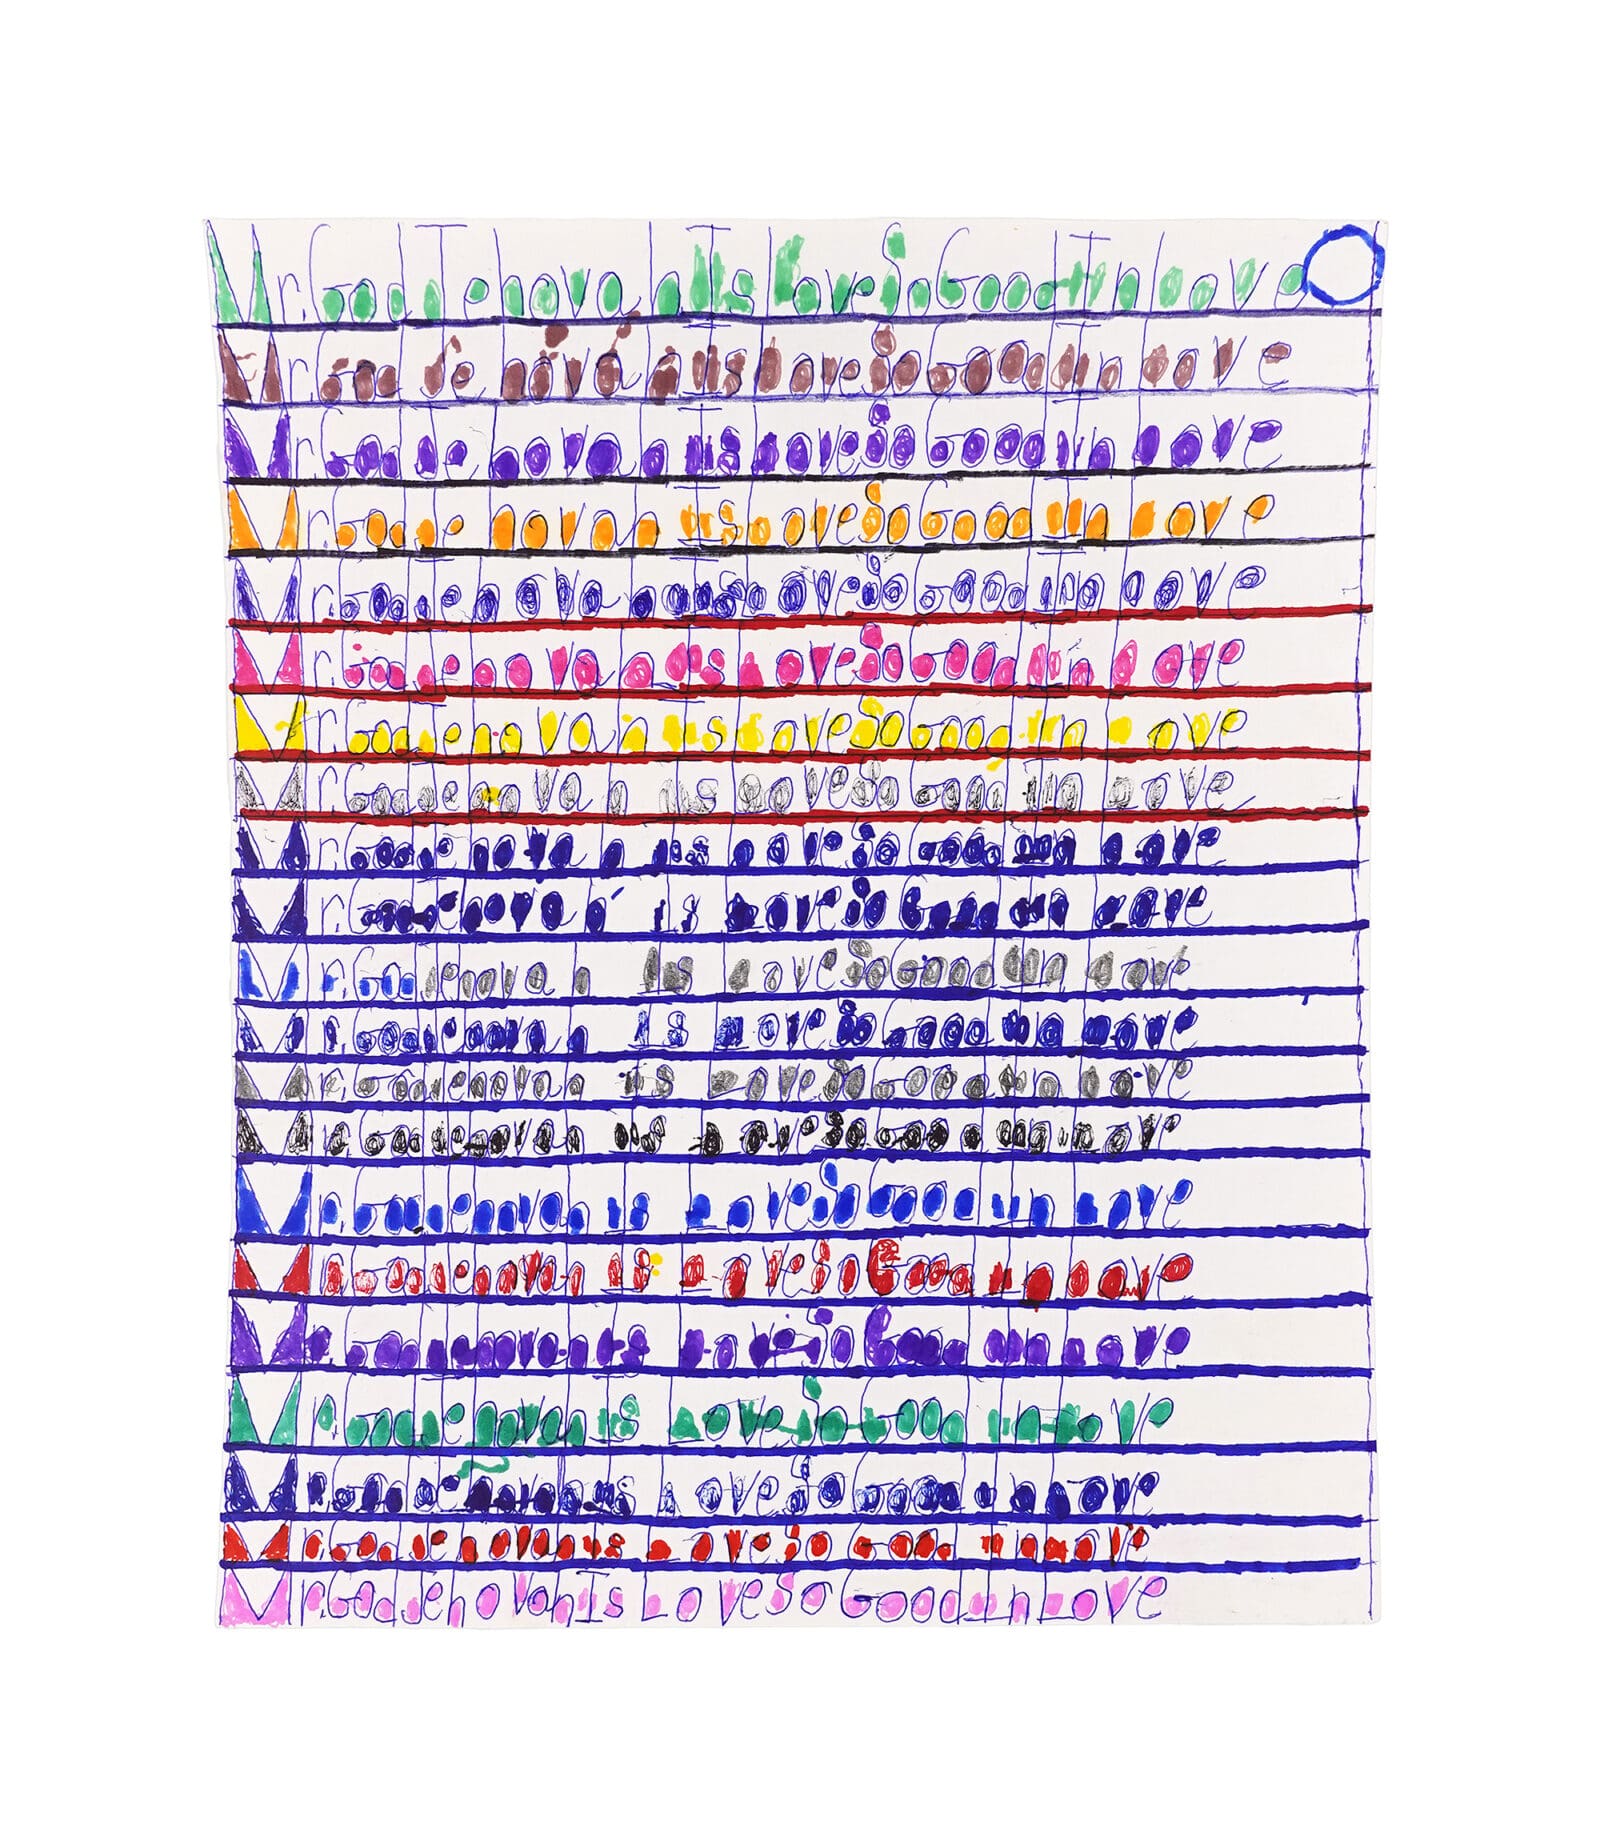 Mr. God Jehovah Is Love So Good In Love
Mr. God Jehovah Is Love So Good In Love
Mr. God Jehovah Is Love So Good In Love
Mr. God Jehovah Is Love So Good In Love
Mr. God Jehovah Is Love So Good In Love
Mr. God Jehovah Is Love So Good In Love
Mr. God Jehovah Is Love So Good In Love
Mr. God Jehovah Is Love So Good In Love
Mr. God Jehovah Is Love So Good In Love
Mr. God Jehovah Is Love So Good In Love
Mr. God Jehovah Is Love So Good In Love
Mr. God Jehovah Is Love So Good In Love
Mr. God Jehovah Is Love So Good In Love
Mr. God Jehovah Is Love So Good In Love
Mr. God Jehovah Is Love So Good In Love
Mr. God Jehovah Is Love So Good In Love
Mr. God Jehovah Is Love So Good In Love
Mr. God Jehovah Is Love So Good In Love
Mr. God Jehovah Is Love So Good In Love
Mr. God Jehovah Is Love So Good In Love
Mr. God Jehovah Is Love So Good In Love